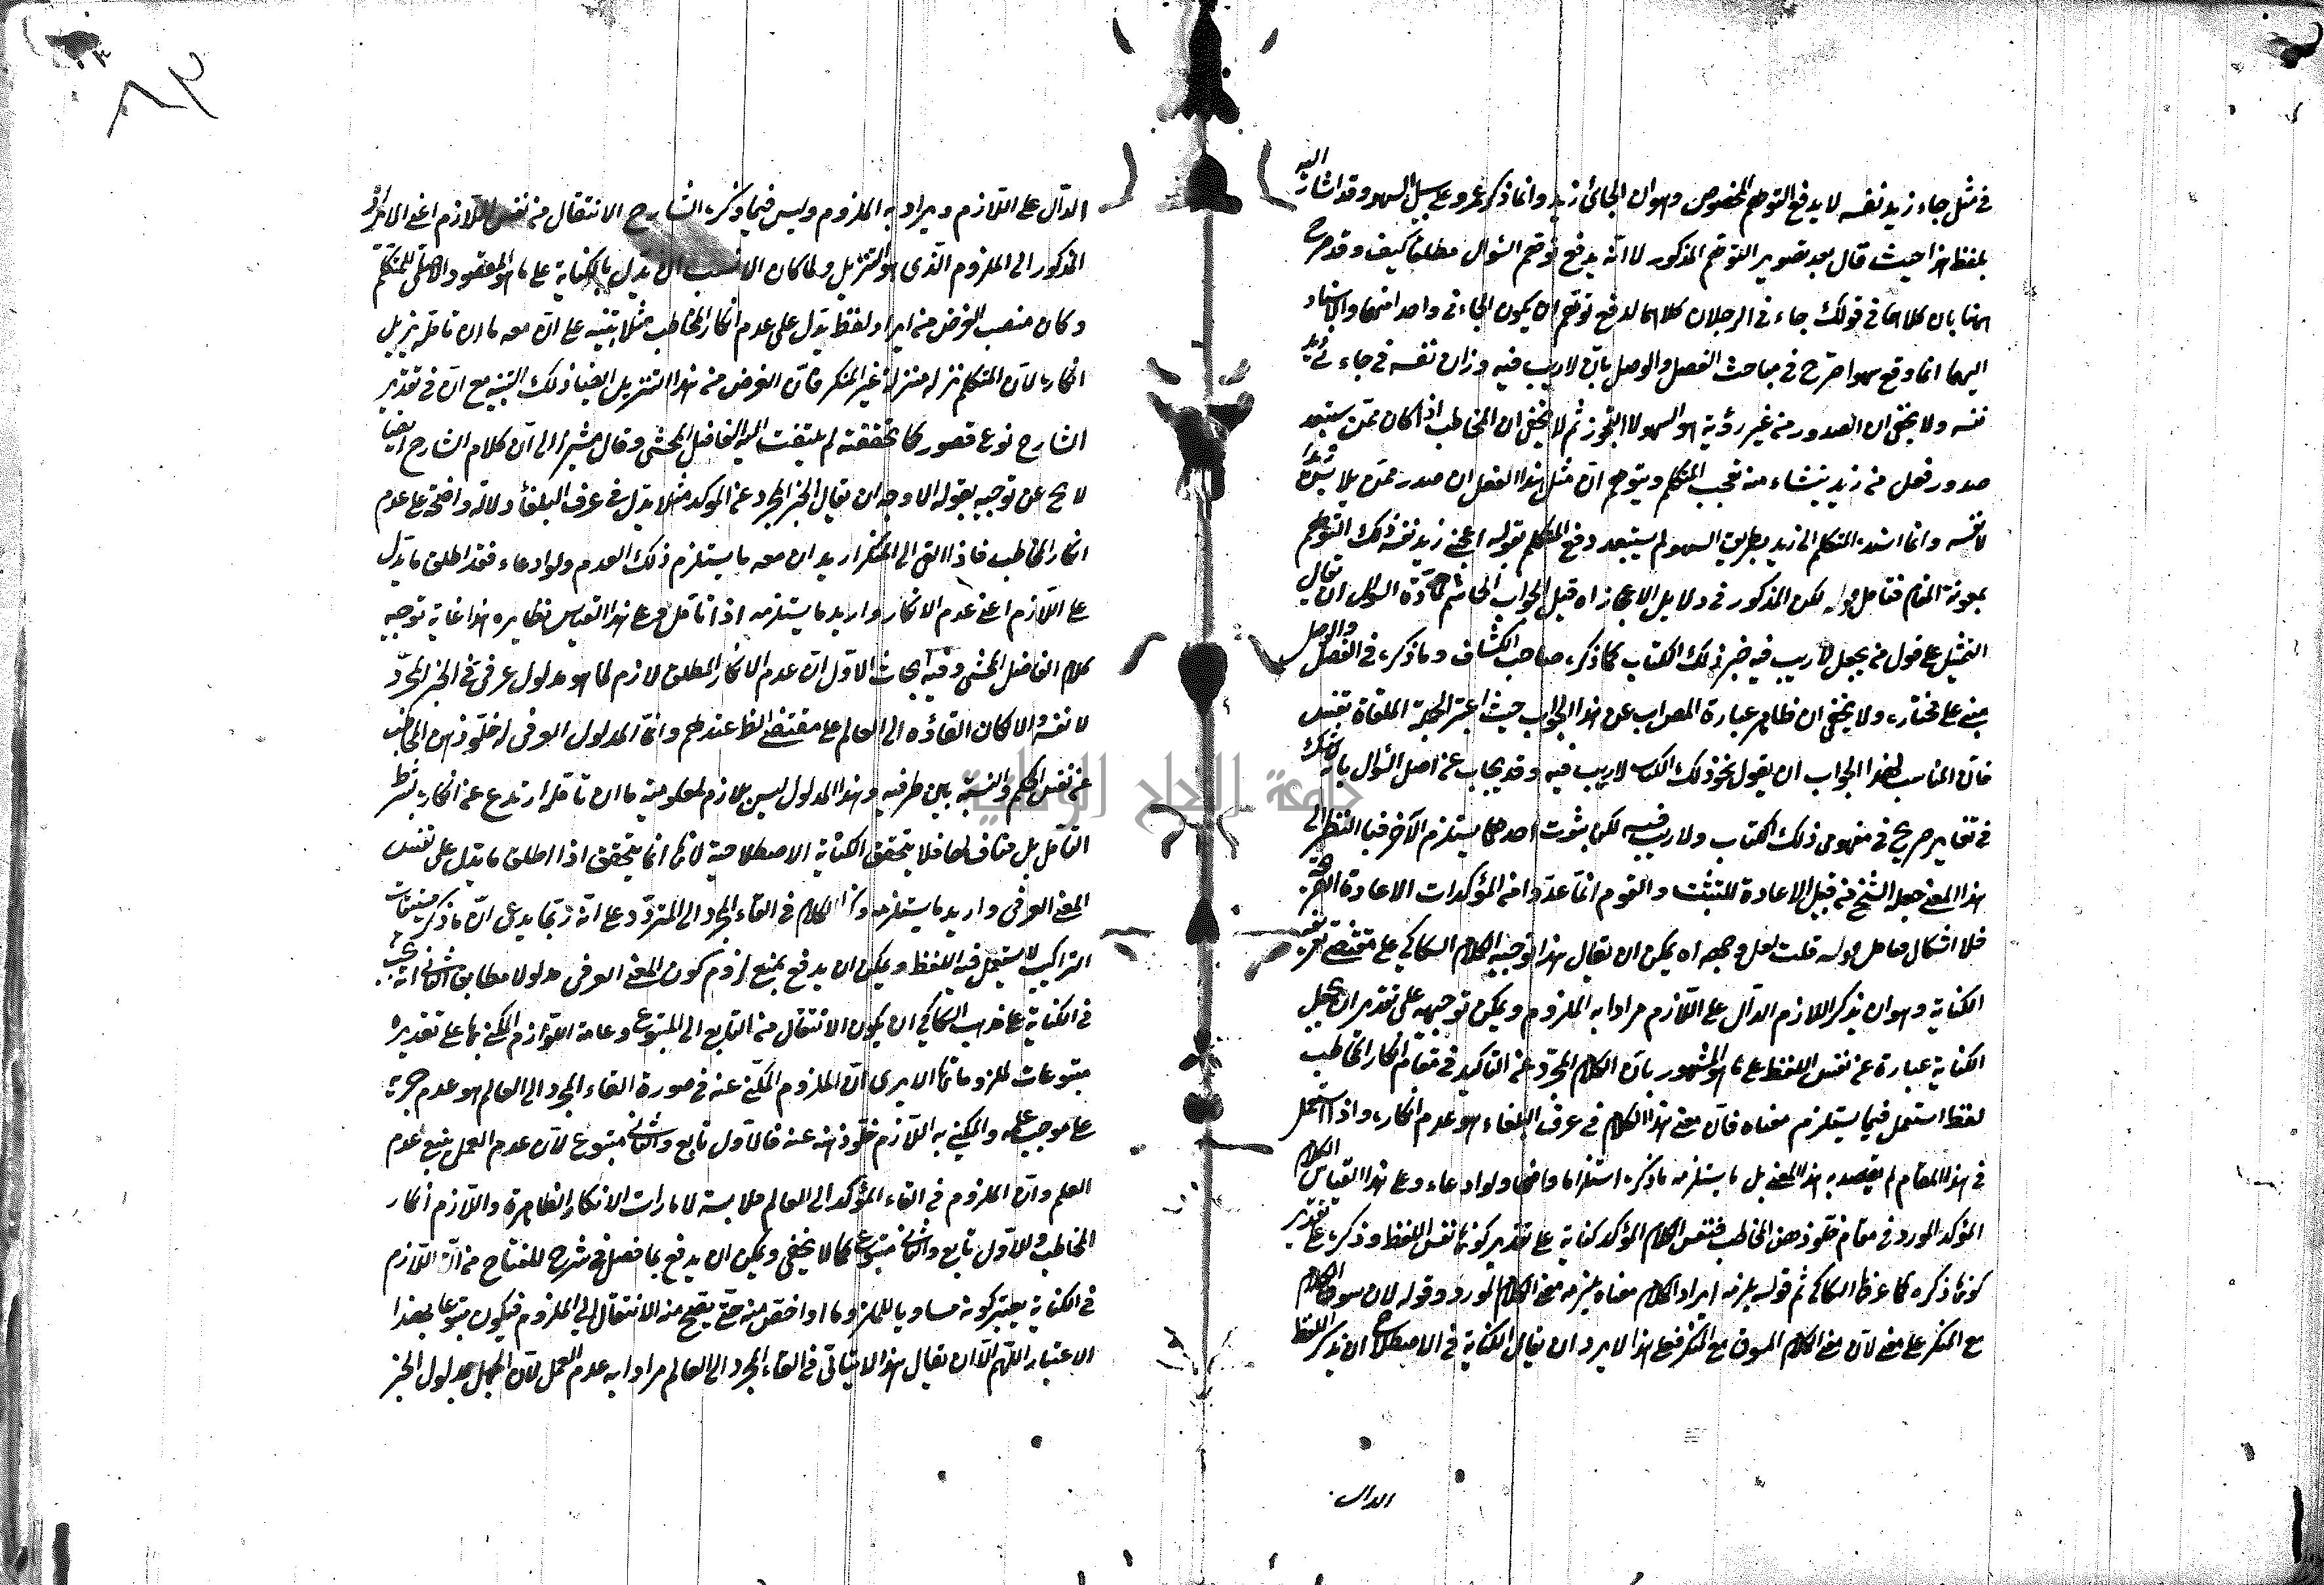 في مثل جاء زيد نفسه لا يدفع التوهم المخصوص وهو ان الجائي زيد وانما ذكر عمرو على سبيل السهو وقد اشار اليه
بلفظ هذا حيث قال بعد تصوير التوهم المذكور لا انه يدفع توهم السؤال مطلقا كيف وقد صرح
ههنا بان كلاهما في قولك جاء في الرجلان كلاهما لدفع توهم ان يكون الجاء في واحد منهما والاسناد
اليهما انما وقع سهوا صرح في مباحث الفصل والوصل بان لا ريب فيه وزان نفسه في جاء ني زيد
نفسه ولا يخفى ان الصدور من غير رؤية هو السهو لا التجوز ثم لا يخفى ان المخاطب اذا كان ممن يستبعد
صدور فعل من زيد ينشاء منه تعجب المتكلم ويتوهم ان مثل هذا الفعل ان صدر ممن يلابس
لا نفسه وانما اسنده المتكلم الى زيد بطريق السهو لم يستبعد دفع المتكلم بقوله اعجبني زيد نفسه ذلك التوهم
بمعونة المقام فتامل قوله لكن المذكور في دلايل الاعجاز اه قيل الجواب الحاسم لمادة السؤال ان يقال
التمثيل على قول من يجعل لا ريب فيه خبر ذلك الكتاب كما ذكره صاحب الكشاف وما ذكره في الفصل والوصل
مبني على مختاره ولا يخفى ان ظاهر عبارة المص اب عن هذا الجواب حيث اعتبر الجملة الملقاة نفس
فان المناسب لهذا الجواب ان يقول نحو ذلك الكتاب لا ريب فيه وقد يجاب عن اصل السؤال بانه لا شك
في تغاير صريح في مفهومي ذلك الكتاب ولا ريب فيه لكن ثبوت احدهما يستلزم الآخر فبالنظر الى
هذا المعنى جعله الشيخ من قبيل الاعادة للتثبت والقوم انما عدوا من المؤكدات الاعادة الصريحة
فلا اشكال فتامل قوله قلت لعل وجهه اه يمكن ان يقال هذا توجيه لكلام السكاكي على مقتضى تعريفه
الكناية وهو ان يذكر اللازم الدال على اللازم مرادا به الملزوم ويمكن توجيهه على تقدير ان يجعل
الكناية عبارة عن نفس اللفظ على ما هو المشهور بان الكلام المجرد عن التاكيد في مقام انكار المخاطب
لفظ استعمل فيما يستلزم معناه فان معنى هذا الكلام في عرف البلغاء هو عدم انكاره واذا استعمل
في هذا المقام لم يقصد به هذا المعنى بل ما يستلزمه ما ذكره استلزاما واضحا ولو ادعاء وعلى هذا القياس الكلام
المؤكد المورد في مقام خلو ذهن المخاطب فنفس الكلام المؤكد كناية على تقدير كونها نفس اللفظ وذكره على تقدير
كونها ذكره كما عرفها السكاكي ثم قوله يلزمه ايراد الكلام معناه يلزمه معنى الكلام المورد وقوله لان سوق الكلام
مع المنكر على معنى لان معنى الكلام المسوق مع المنكر فعلى هذا لا يرد ان يقال الكناية في الاصطلاح ان يذكر اللفظ
الدال
الدال على اللازم ويراد به الملزوم وليس فيما ذكره الشارح الانتقال من نفس اللازم اعني الايراد
المذكور الى الملزوم الذي هو التنزيل ولما كان الانسب ان يدل بالكناية على ما هو المقصود الاصلي للمتكلم
وكان منصب الغرض من ايراد لفظ يدل على عدم انكار المخاطب مثلا تنبيه على ان معه ما ان تامله يزيل
انكاره لان المتكلم نزله منزلة غير المنكر فان الغرض من هذا التنزيل ايضا ذلك التنبيه مع ان في تقرير
الشارح نوع قصور كما تحققته لم يلتفت اليه الفاضل المحشي وقال مشيرا الى ان كلام الشارح ايضا
لا يخ عن توجيه بقوله الاوجه ان يقال الخبر المجرد عن المؤكد مثلا يدل في عرف البلغاء دلالة واضحة على عدم
انكار المخاطب فاذا القي الى المنكر اريد ان معه ما يستلزم ذلك العدم ولو ادعاء فقد اطلق ما يدل
على اللازم اعني عدم الانكار واريد ما يستلزمه اذا تامل وعلى هذا القياس نظايره هذا غاية توجيه
كلام الفاضل المحشي وفيه ابحاث الاول ان عدم الانكار المطلق لازم لما هو مدلول عرفي في الخبر المجرد
لا نفسه والا كان القاؤه الى العالم على مقتضى الظ عندهم وانما المدلول العرفي له خلو ذهن المخاطب
عن نفس الحكم والنسبة بين طرفيه وهذا المدلول ليس بلازم لمعلومية ما ان تامله ارتدع عن انكاره بشرط
التامل بل مناف لها فلا يتحقق الكناية الاصطلاحية لانها انما يتحقق اذا اطلق ما يدل على نفس
المعنى العرفي واريد ما يستلزمه وكذا الكلام في القاء المجرد الى المتردد على انه ربما يدعى ان ما ذكر مستتبعات
التراكيب لا يستعمل فيه اللفظ ويمكن ان يدفع بمنع لزوم كون المعنى العرفي مدلولا مطابقيا الثاني انه يجب
في الكناية على مذهب السكاكي ان يكون الانتقال من التابع الى المتبوع وعامة اللوازم المكني بها على تقديره
متبوعات لملزوماتها الا يرى ان الملزوم المكني عنه في صورة القاء المجرد الى العالم هو عدم جريه
على موجب علمه والمكني به اللازم خلو ذهنه عنه فالاول تابع والثاني متبوع لان عدم العمل يتبع عدم
العلم وان الملزوم في القاء المؤكد الى العالم ملابسة لامارات الانكار الظاهرة واللازم انكار
المخاطب والاول تابع والثاني متبوع كما لا يخفى ويمكن ان يدفع بما فصل في شرح للمفتاح من ان اللازم
في الكناية يعتبر كونه مساويا للملزوم او اخص منه حتى يصح منه الانتقال الى الملزوم فيكون متبوعا بهذا
الاعتبار اللهم الا ان يقال هذا لا يتأتى في القاء المجرد الى العالم مرادا به عدم العمل لان الجهل بمدلول الخبر
جامعة الملك